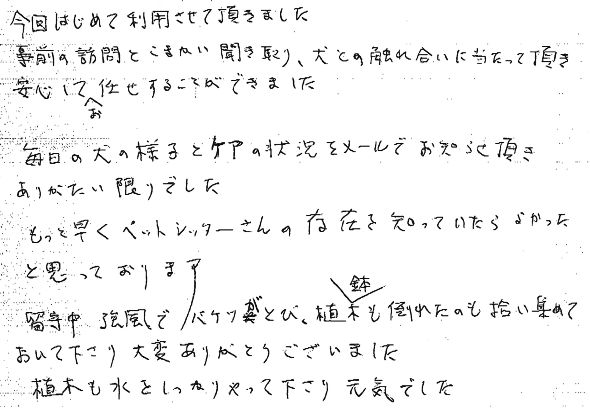 今回はじめて利用させて頂きました
事前の訪問とこまかい聞き取り、犬との触れ合いに当たって頂き
安心してお任せすることができました
毎日の犬の様子とケアの状況をメールでお知らせ頂き
ありがたい限りでした
もっと早くペットシッターさんの存在を知っていたらよかった
と思っております
留守中 強風でバケツがとび、植木鉢も倒れたのも拾い集めて
おいて下さり大変ありがとうございました
植木も水をしっかりやって下さり元気でした